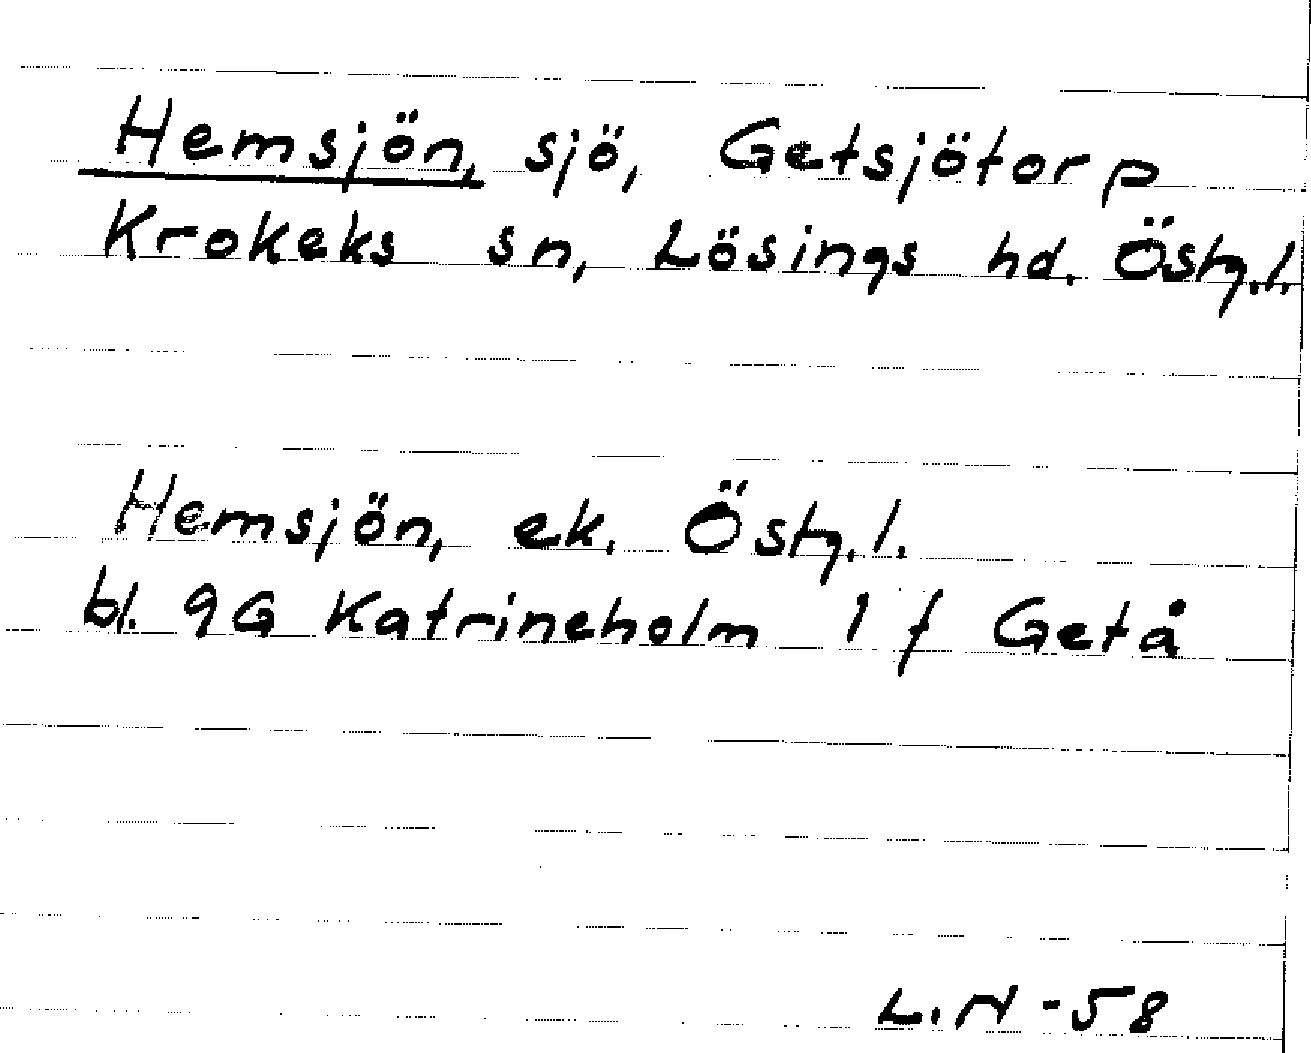 Hemsjön, sjö, Getsjötorp
Krokeks sn, Lösings hd. Östg.l.
Hemsjön, ek. Östg.l.
bl. 9G Katrineholm 1 f Getå
L.N -58